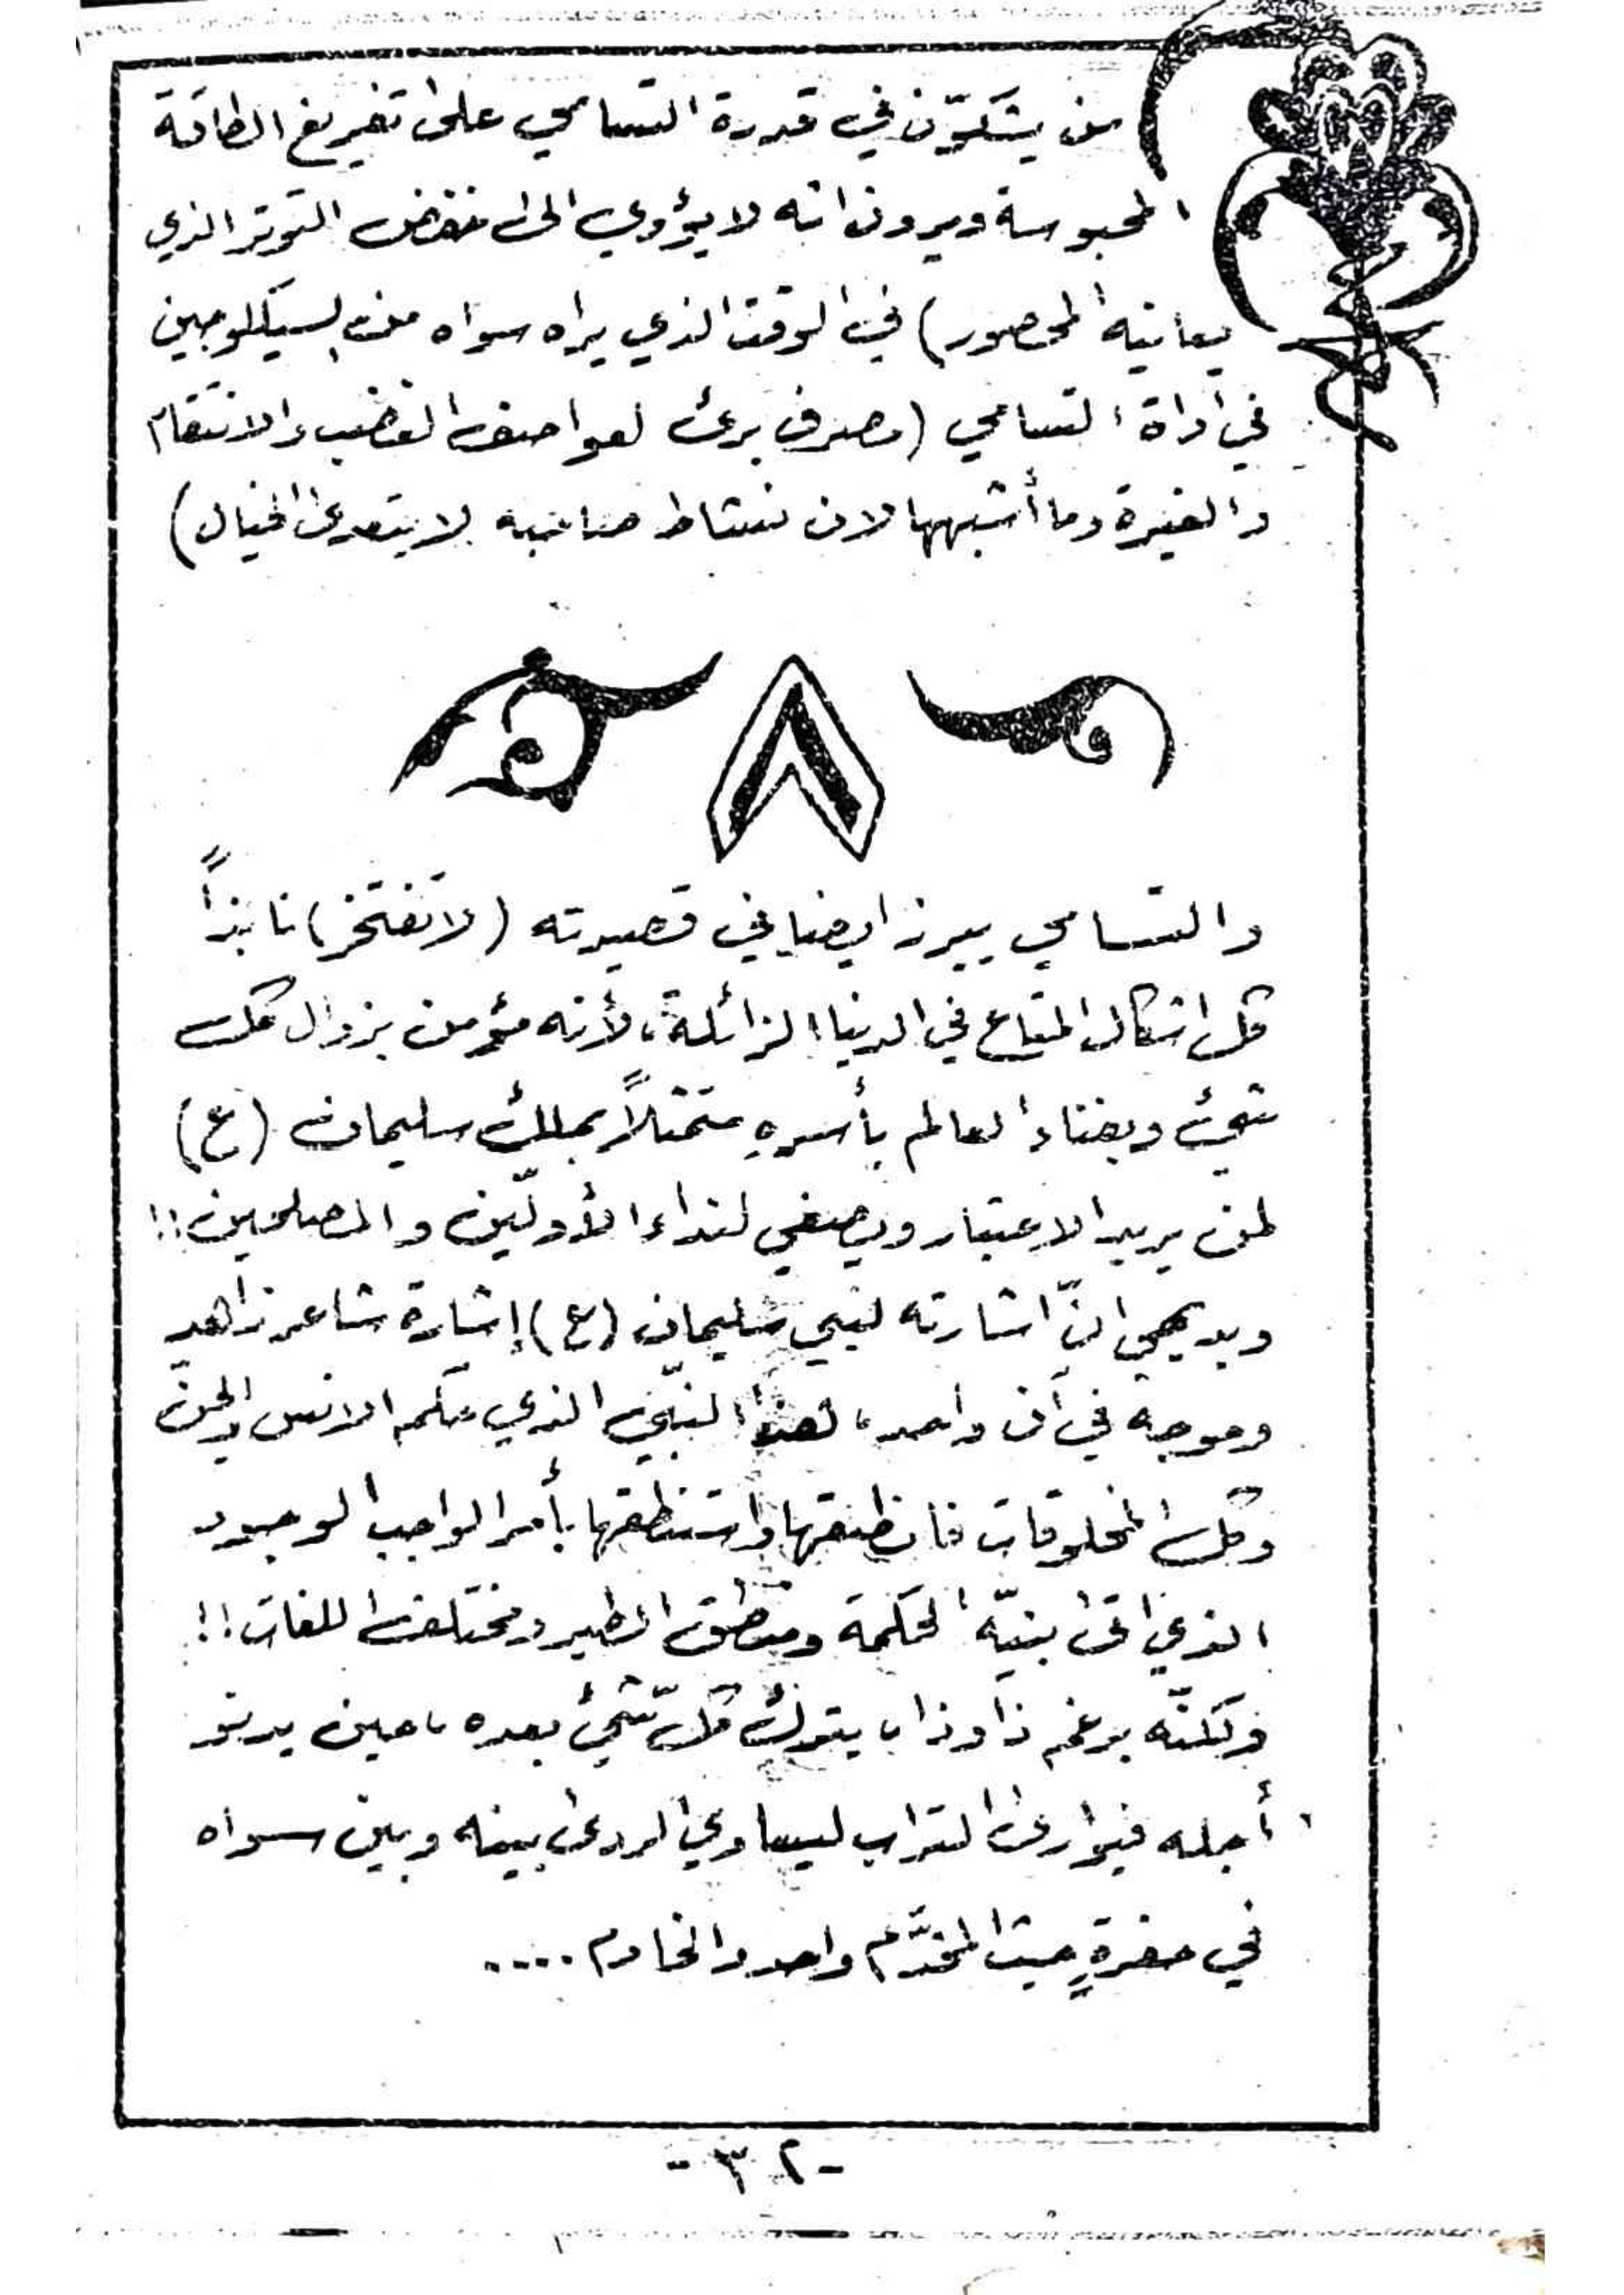 من يشكّون في قدرة التسامي على تفريغ الطاقة
المحبوسة ويرون انه لا يؤدي الى خفض التوتر الذي
يعانيه المحصور) في الوقت الذي يراه سواه من السيكلوجين
في أداة التسامي (مصرف برئ لعواصف الغضب والانتقام
والغيرة وما أشبهها لان نشاط صاحبه لا يتعدى الخيال)
٨
والتسامي يبرز ايضا في قصيدته (لا تفتخر) نابذاً
كل اشكال المتاع في الدنيا الزائلة، لأنه مؤمن بزوال كل
شيئ وبفناء العالم بأسره متمثلاً بملك سليمان (ع)
لمن يريد الاعتبار ويصغي لنداء الأولّين والمصلحين!!
وبديهي انّ اشارته لنبي سليمان (ع) إشارة شاعر زاهد
وموجه في آن واحد، لهذا النبّي الذي حكم الانس والجن
وكل المخلوقات فانطقها واستنطقها بأمر الواجب الوجود
الذي اتى بنيّه الحكمة ومنطق الطير ومختلف اللغات!!
ولكنّه برغم ذا وذا، يترك كلّ شيئ بعده، حين يدنو
أجله فيوارى التراب ليساوي الردى بينه وبين سواه
في حفرةٍ حيث المخدّم واحد والخادم....
- ٣٢ -